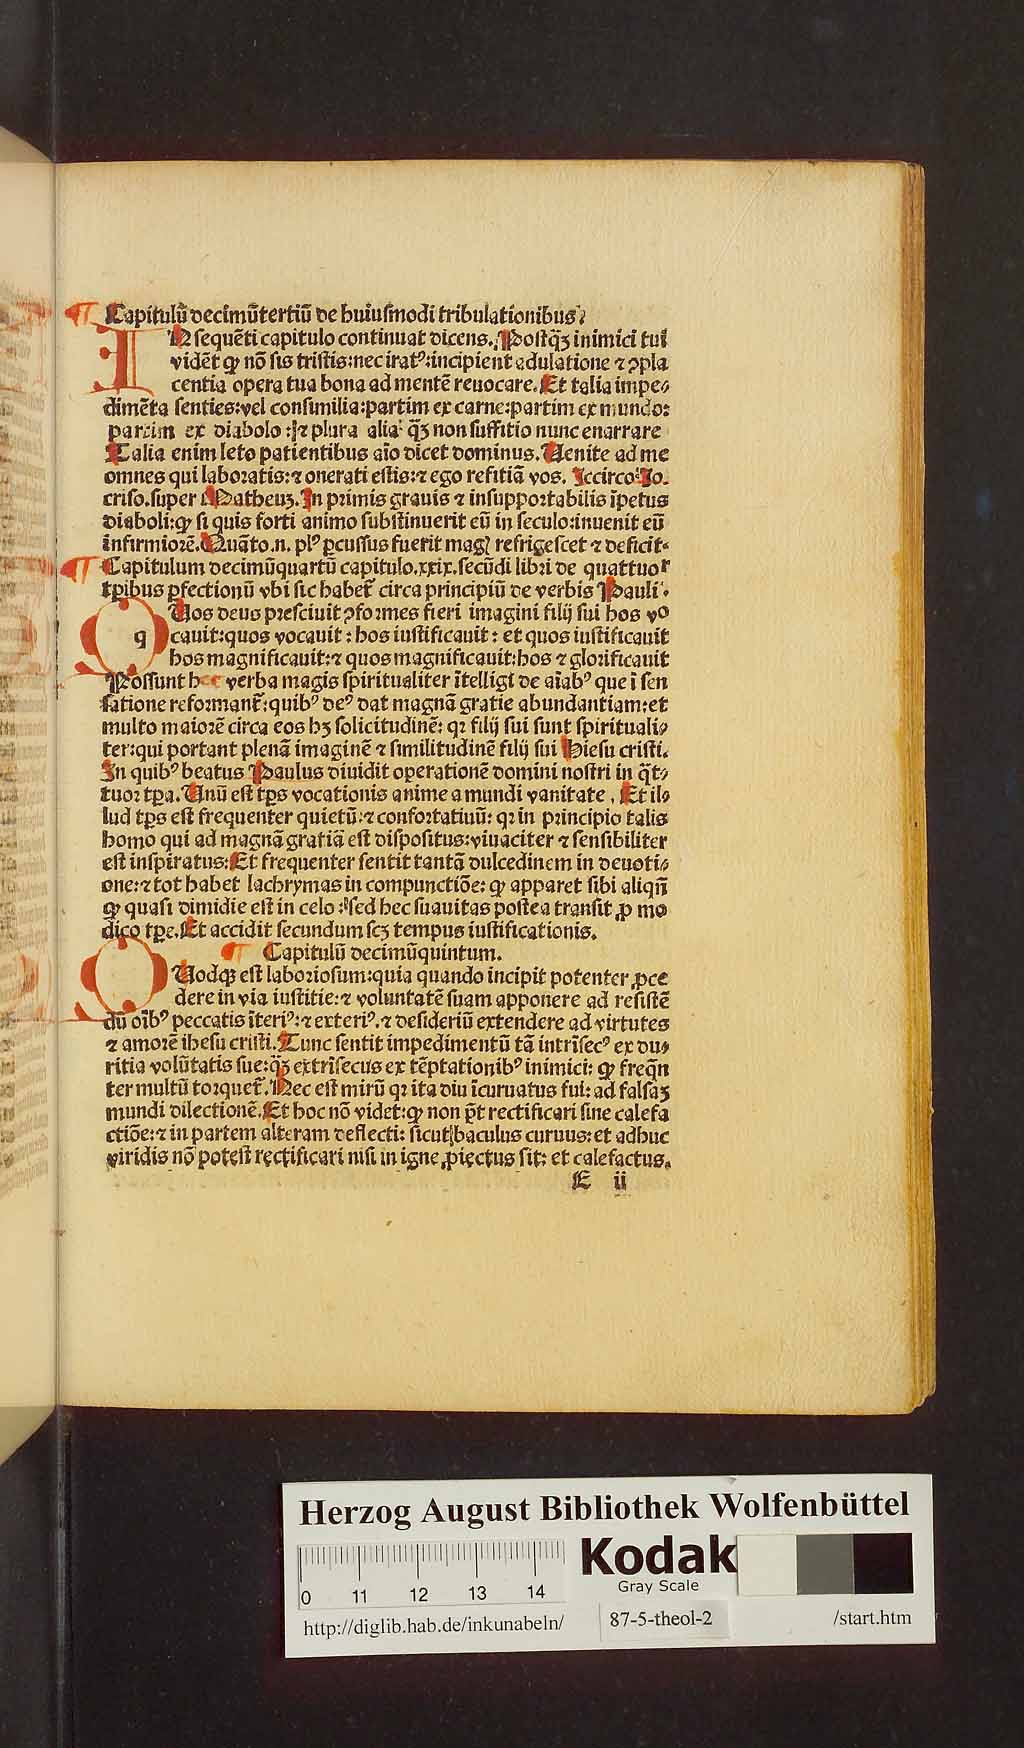 Capitulū decimūtertiū de huiusmodi tribulationibus
IN sequēti capitulo continuat dicens. Postqꝫ inimici tui
vidēt ꝙ nō sis tristis:nec irat⁹:incipient adulatione ⁊ ꝯpla
centia opera tua bona ad mentē reuocare. Et talia impe-
dimēta senties:vel consimilia:partim ex carne:partim ex mundo:
partim ex diabolo : ⁊ plura alia: q̄ꝫ non suffitio nunc enarrare
Talia enim leto patientibus aīo dicet dominus. Uenite ad me
omnes qui laboratis:⁊ onerati estis:⁊ ego refitiā vos. Iccirco Jo.
criso.super Matheuꝫ. In primis grauis ⁊ insupportabilis īpetus
diaboli:ꝙ si quis forti animo substinuerit eū in seculo:inuenit eū
infirmiorē. Quāto.n. pl⁹ ꝑcussus fuerit mag̃ refrigescet ⁊ deficit.
Capitulum decimūquartū capitulo.xxix.secūdi libri de quattuor
tꝑibus ꝑfectionū vbi sic habet̄ circa principiū de verbis Pauli.
QUos deus presciuit ꝯformes fieri imagini filij sui hos vo
q cauit:quos vocauit : hos iustificauit : et quos iustificauit
hos magnificauit:⁊ quos magnificauit:hos ⁊ glorificauit
Possunt hec verba magis spiritualiter ītelligi de aīab⁹ que ī sen
satione reformant̄:quib⁹ de⁹ dat magnā gratie abundantiam:et
multo maiorē circa eos hꝫ solicitudinē: qꝛ filij sui sunt spirituali-
ter:qui portant plenā imaginē ⁊ similitudinē filij sui Hiesu cristi.
In quib⁹ beatus Paulus diuidit operationē domini nostri in q̄t-
tuor tꝑa. Unū est tꝑs vocationis anime a mundi vanitate . Et il-
lud tꝑs est frequenter quietū:⁊ confortatiuū: qꝛ in principio talis
homo qui ad magnā gratiā est dispositus:viuaciter ⁊ sensibiliter
est inspiratus: Et frequenter sentit tantā dulcedinem in deuoti-
one:⁊ tot habet lachrymas in compunctiōe: ꝙ apparet sibi aliqn̄
ꝙ quasi dimidie est in celo : sed hec suauitas postea transit ꝓ mo
dico tꝑe. Et accidit secundum scꝫ tempus iustificationis.
Capitulū decimūquintum.
QUodqꝫ est laboriosum:quia quando incipit potenter ꝓce
dere in via iustitie:⁊ voluntatē suam apponere ad resistē
dū oīb⁹ peccatis īteri⁹:⁊ exteri⁹.⁊ desideriū extendere ad virtutes
⁊ amorē ihesu cristi. Tunc sentit impedimentū tā intrīsec⁹ ex du-
ritia volūtatis sue:q̄ꝫ extrīsecus ex tēptationib⁹ inimici: ꝙ freq̄n
ter multū torquet̄. Nec est mirū qꝛ ita diu īcuruatus fuit ad falsaꝫ
mundi dilectionē. Et hoc nō videt:ꝙ non p̄t rectificari sine calefa
ctiōe:⁊ in partem alteram deflecti: sicut baculus curuus: et adhuc
viridis nō potest rectificari nisi in igne ꝓiectus sit: et calefactus.
E ii
Herzog August Bibliothek Wolfenbüttel
Kodak
Gray Scale
0 11 12 13 14
http://diglib.hab.de/inkunabeln/ 87-5-theol-2 /start.htm